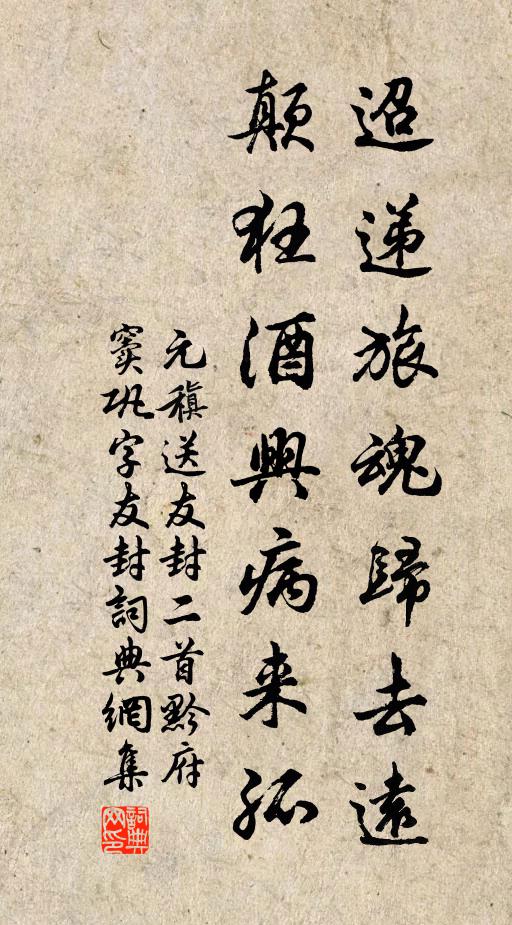 迢递旅魂歸去遠
顛狂酒興病来孤
元稹送友封二首黔府
竇巩字友封詞典網集
詞典网印